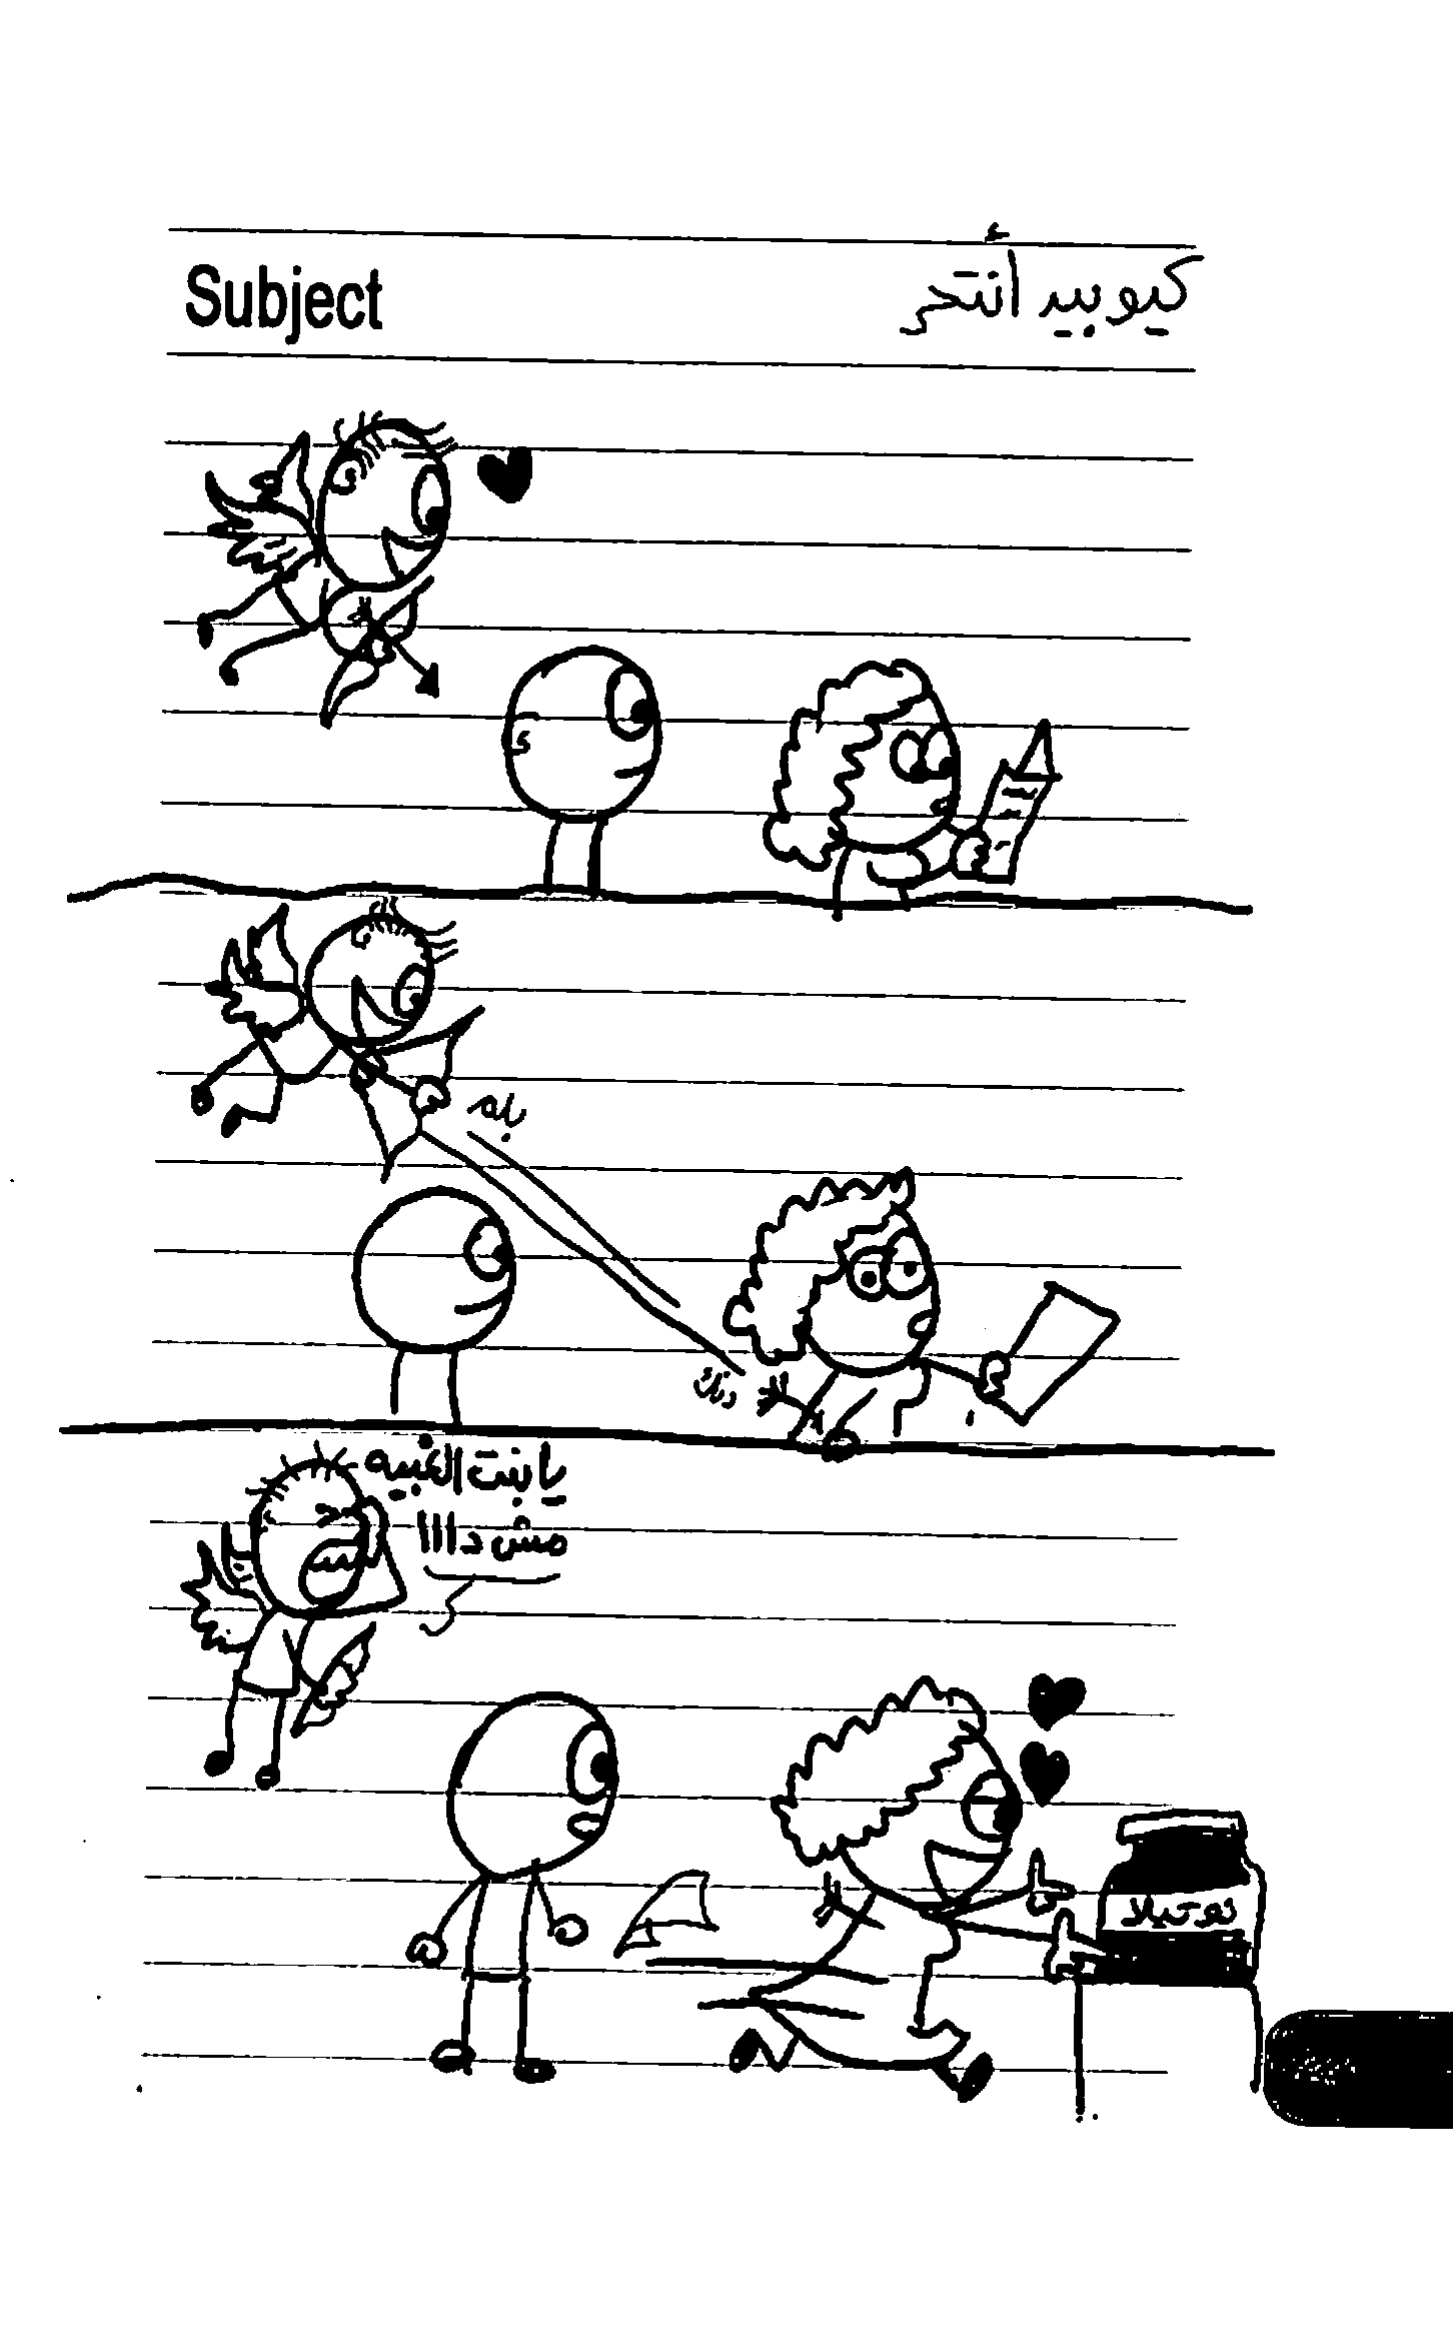 Subject
كيوبيد أنتحر
يابنت الغبيه
مش دااا
نوتيلا